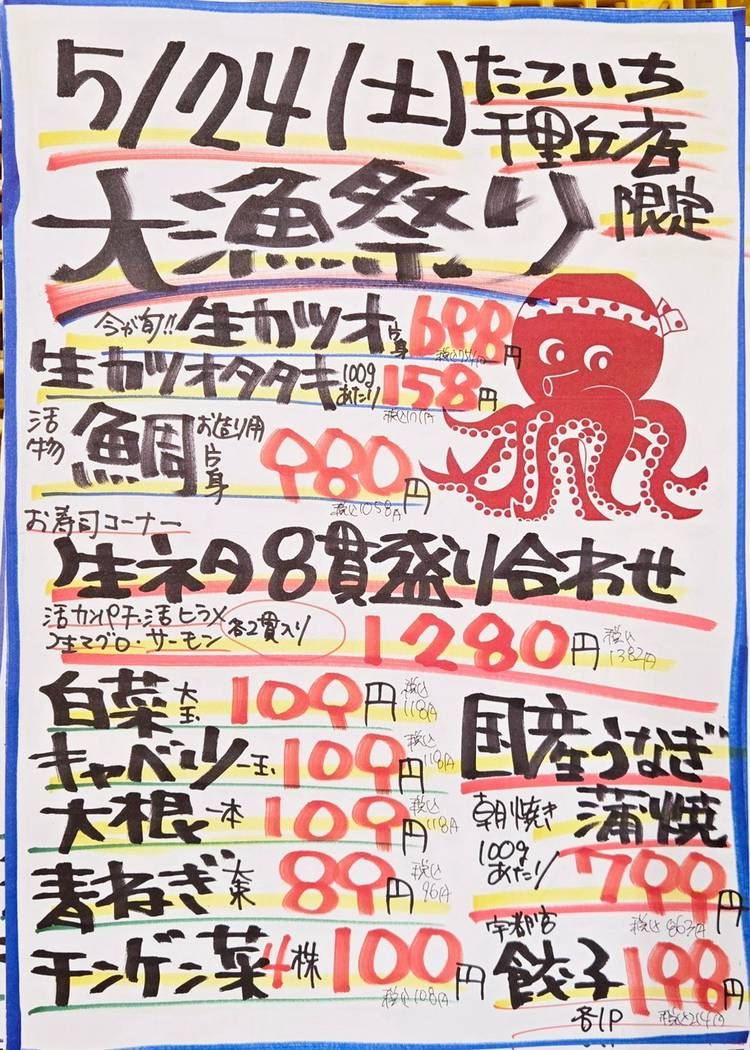 5/24(土)
たこいち
千里丘店
限定
大漁祭り
今が旬!! 生カツオ 片身 698円
税込754円
生カツオタタキ 100gあたり 158円
税込171円
活物 鯛 お造り用 片身 980円
税込1058円
お寿司コーナー
生ネタ8貫盛り合わせ
活カンパチ・活ヒラメ
生マグロ・サーモン 各2貫入り 1280円 税込1382円
白菜 大玉 109円 税込118円
キャベツ 一玉 109円 税込118円
大根 一本 109円 税込118円
青ねぎ 大束 89円 税込96円
チンゲン菜 4株 100円
税込108円
国産うなぎ
蒲焼
朝焼き
100gあたり 799円
税込863円
宇都宮
餃子 198円
各1P 税込214円